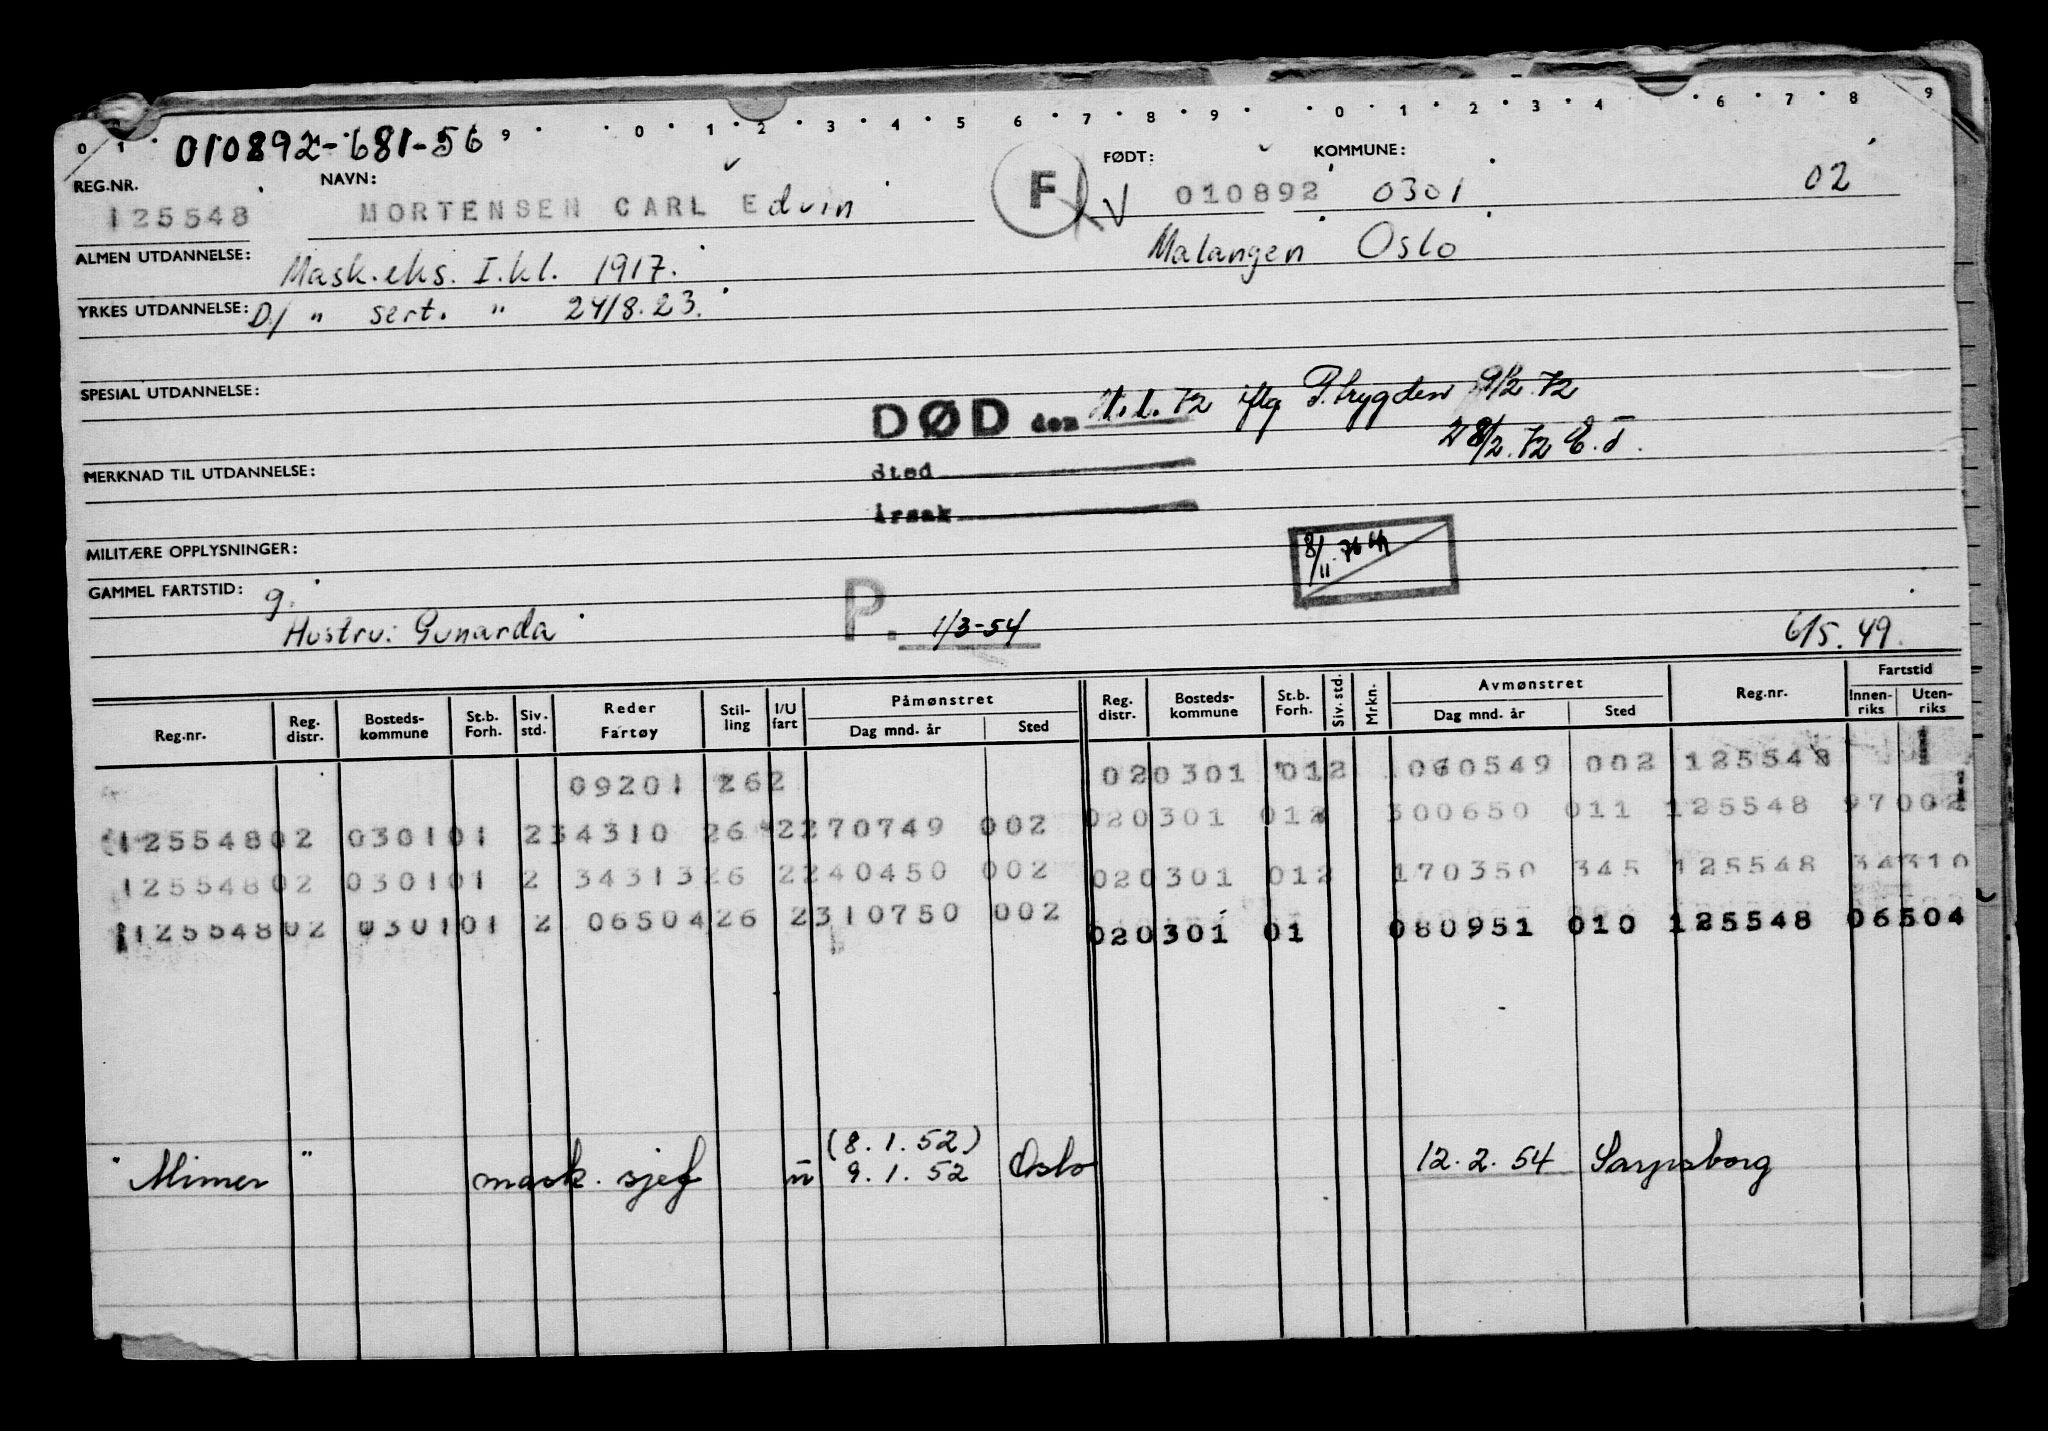 0 1 9 0 1 2 3 4 5 6 7 8 9 0 1 2 3 4 6 7 8 9
010892-681-56
REG.NR. NAVN: FØDT: KOMMUNE:
125548 MORTENSEN CARL Edvin F V 010892 0301 02
Malangen Oslo
ALMEN UTDANNELSE: Mask.eks. I.kl. 1917.
YRKES UTDANNELSE: D/ " sert. " 24/8.23.
SPESIAL UTDANNELSE:
DØD den 72 iflg P.trygden 9/2.72
28/2.72 E.T.
MERKNAD TIL UTDANNELSE:
sted
årsak
MILITÆRE OPPLYSNINGER:
8/11.76
GAMMEL FARTSTID: g.
Hustru: Gunarda P. 1/3-54 6/5.49.
Reg.nr. Reg. distr. Bosteds-kommune St.b. Forh. Siv. std. Reder Fartøy Stil-ling I/U fart Påmønstret Dag mnd. år Sted Reg. distr. Bosteds-kommune St.b. Forh. Siv. std. Mrkn. Avmønstret Dag mnd. år Sted Reg.nr. Fartstid Innen-riks Uten-riks
09201 262 020301 012 060549 002 125548
12554802 030101 234310 26 2270749 002 020301 012 300650 011 125548 97002
12554802 030101 2 3431326 2240450 002 020301 012 170350 345 125548 34310
12554802 030101 2 0650426 2310750 002 020301 01 080951 010 125548 06504
(8.1.52)
"Mimer" mask. sjef u 9.1.52 Oslo 12.2.54 Sarpsborg